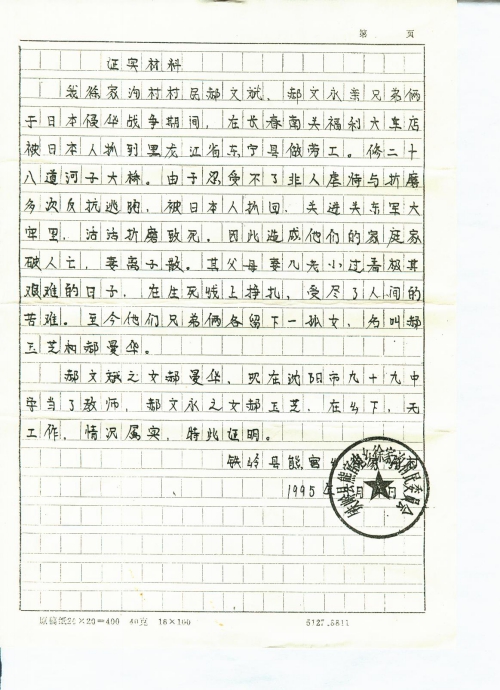 第 页
证实材料
我徐家沟村村民郝文斌、郝文永亲兄弟俩
于日本侵华战争期间，在长春南关福利大车店
被日本人抓到黑龙江省东宁县做劳工。修二十
八道河子大桥。由于忍受不了非人虐待与折磨
多次反抗逃跑，被日本人抓回，关进关东军大
牢里，活活折磨致死。因此造成他们的家庭家
破人亡，妻离子散。其父母妻儿老小过着极其
艰难的日子，在生死线上挣扎，受尽了人间的
苦难。至今他们兄弟俩各留下一孤女，名叫郝
玉芝和郝曼华。
郝文斌之女郝曼华，现在沈阳市九十九中
学当了教师，郝文永之女郝玉芝，在乡下，无
工作，情况属实，特此证明。
铁岭县熊官
1995年 月 日
铁岭县熊官 徐家沟村民委员会
原稿纸24×20=400 40克 16×100
6127.6811